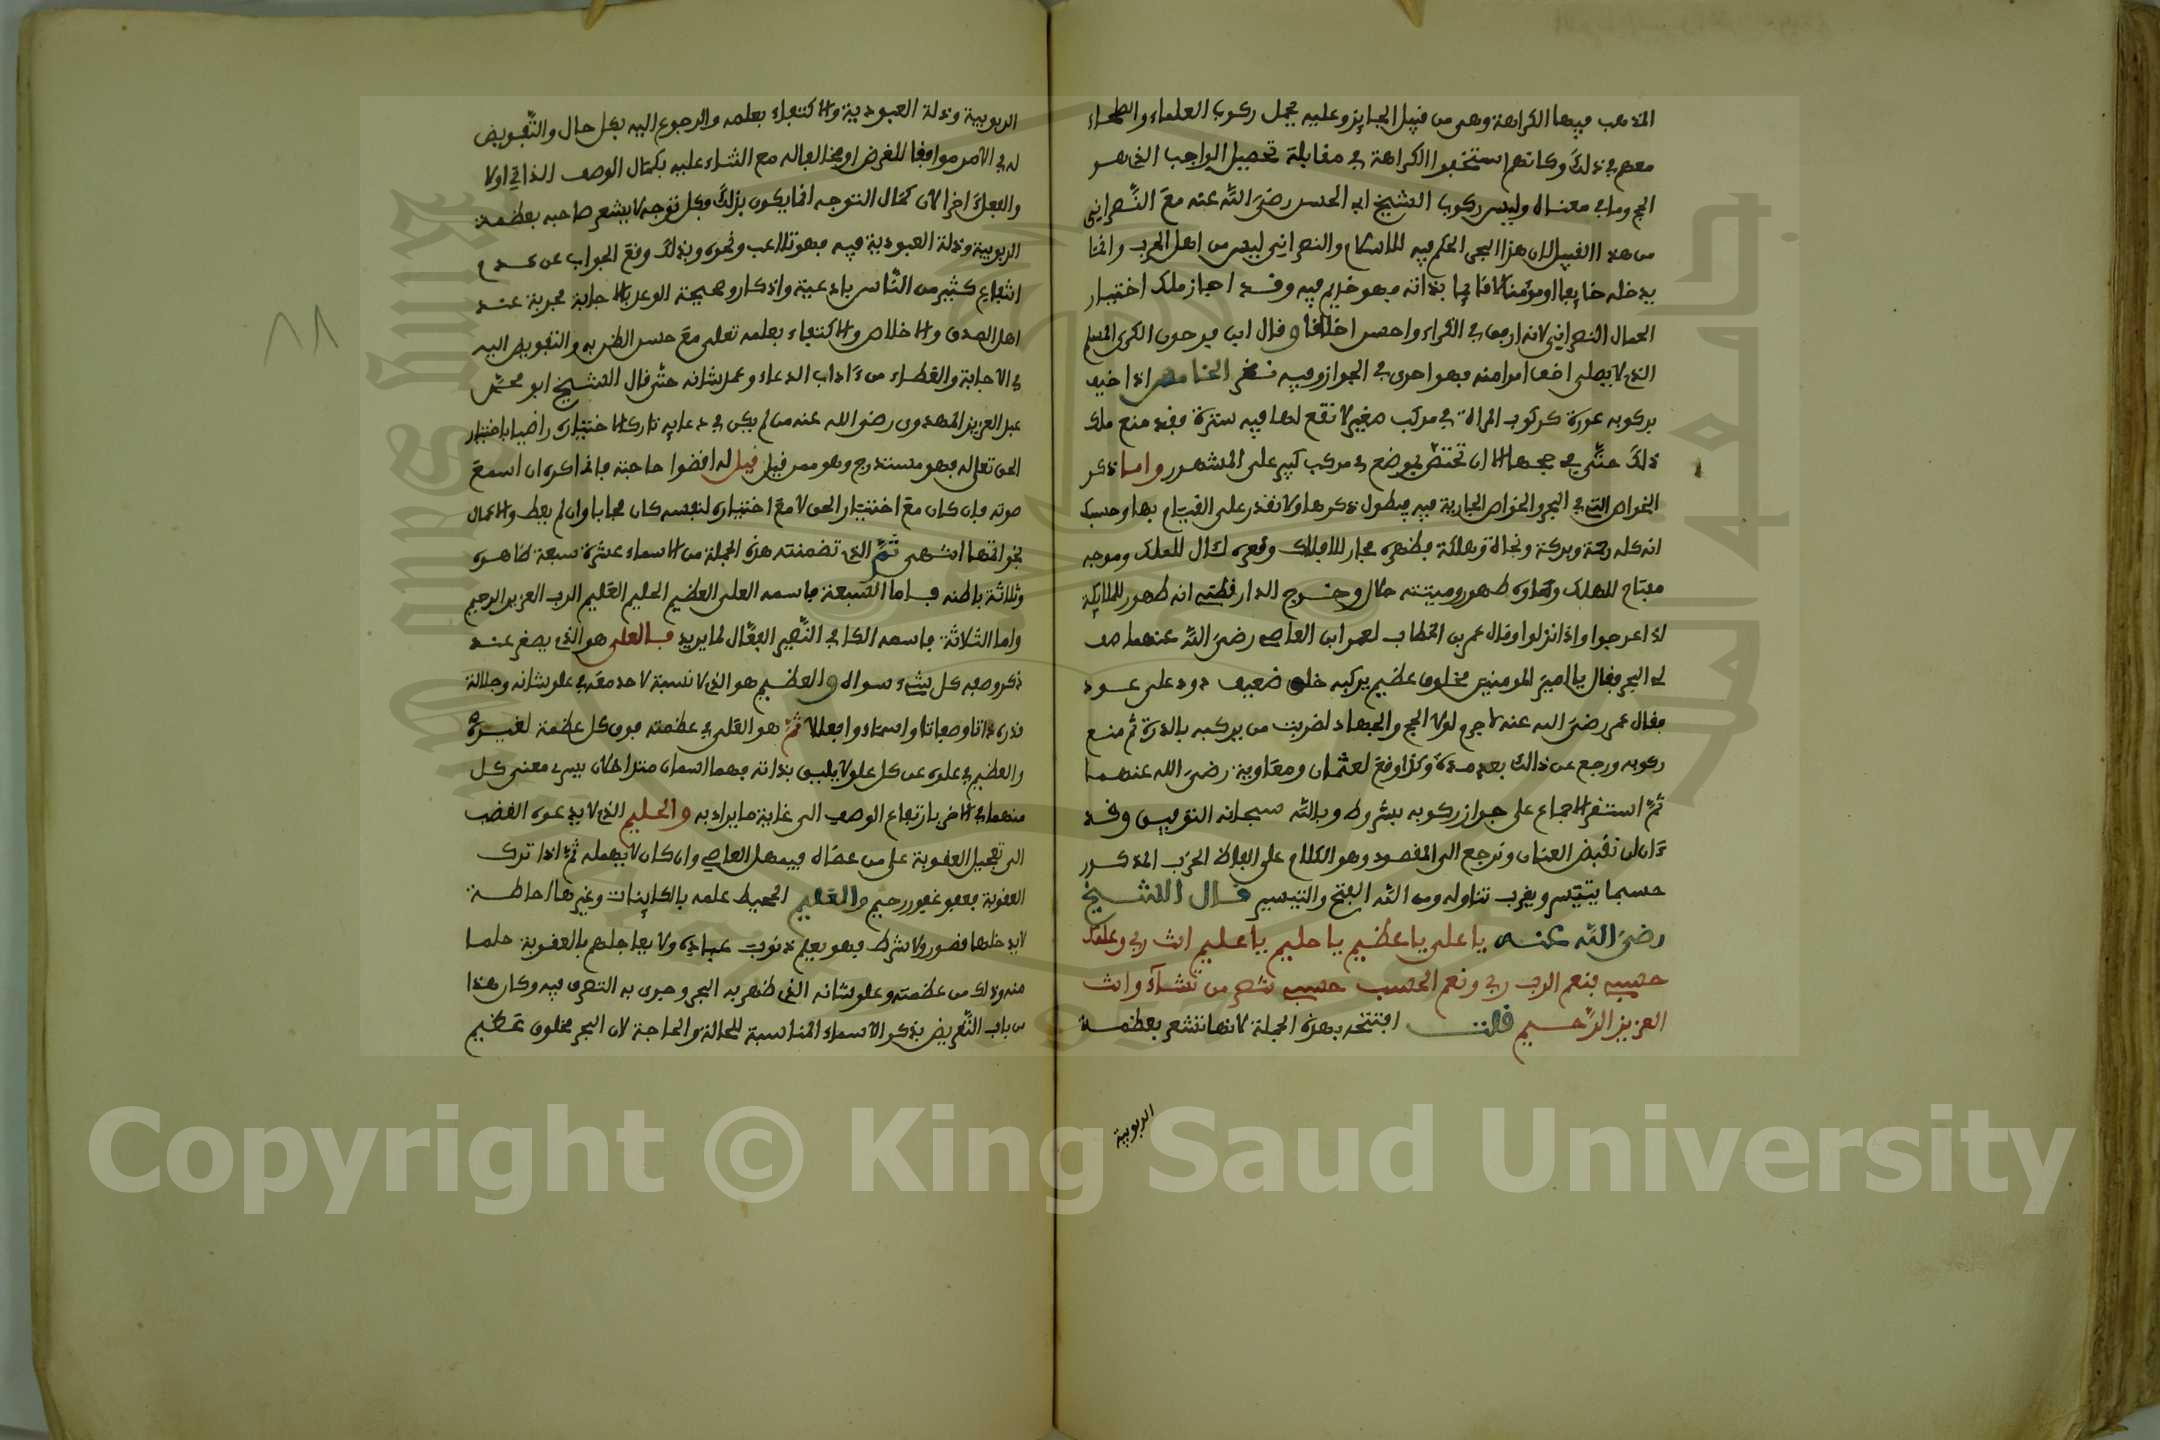 المذهب فيها الكراهة وهى من قبيل الجايز وعليه يحمل ركوب العلماء والصلحاء
معهم في ذلك وكانهم استخفوا الكراهة في مقابلة تحصيل الواجب الذى هو
الحج وما في معناه وليس ركوب الشيخ ابى الحسن رضي الله عنه مع النصراني
من هذا القبيل لان هذا البحر الحكم فيه للاسلام والنصراني ليس من اهل الحرب وانما
يدخله خايفا او مومنا لا قايما بذاته فهو خديم فيه وقد اجاز ملك اختيار
الحمال النصراني لانه ارفق في الكراء واحسن اخلاقا وقال ابن فرحون الكري المسلم
الذى لا يصلى اخف امرا منه فهو احرى في الجواز وفيه نظر الخامس اذا خيف
بركوبه عورة كركوب المراة في مركب صغير لا تقع لها فيه سترة فقد منع ملك
ذلك حتى في حجها الا ان تختص بموضع في مركب كبير على المشهور واما ذكر
الخواص التى في البحر والخواص الجارية فيه فيطول ذكرها ولا نقدر على القيام بها وحسبك
انه كله رحمة وبركة ونجاة وهلكة فظهره مجار للافلاك وقعره لئال للملك وموجه
مفتاح للهلك وماؤه طهور وميتته حلال وخرج الدارقطني انه طهور للملايكة
اذا عرجوا واذا نزلوا وقال عمر بن الخطاب لعمر ابن العاصى رضي الله عنهما صف
لى البحر فقال يا امير المومنين مخلوق عظيم يركبه خلق ضعيف دود على عود
فقال عمر رضي الله عنه لا جرم لولا الحج والجهاد لضربت من يركبه بالدرة ثم منع
ركوبه ورجع عن ذالك بعد مدة وكذا وقع لعثمان ومعاوية رضي الله عنهما
ثم استقر الاجماع على جواز ركوبه بشروطه وبالله سبحانه التوفيق وقد
ءان ان نقبض العنان ونرجع الى المقصود وهو الكلام على الفاظ الحزب المذكور
حسبما يتيسر ويقرب تناوله ومن الله الفتح والتيسير قال الشيخ
رضي الله عنه يا على يا عظيم يا حليم يا عليم انت ربي وعلمك
حسبى فنعم الرب ربي ونعم الحسب حسبى تنصر من تشاء وانت
العزيز الرحيم قلت افتتحه بهذه الجملة لانها تشعر بعظمة
الربوبية
الربوبية وذلة العبودية والاكتفاء بعلمه والرجوع اليه بكل حال والتفويض
له في الامر موافقا للغرض او مخالفا له مع الثناء عليه بكمال الوصف الذاتي اولا
والفعلى اخرا لان كمال التوجه انما يكون بذلك فكل توجه لا يشعر صاحبه بعظمة
الربوبية وذلة العبودية فيه فهو تلاعب ونحوه وبذلك وقع الجواب عن عدم
انتفاع كثير من الناس بادعية واذكار وصحيحة الوعد بالاجابة مجربة عند
اهل الصدق والاخلاص والاكتفاء بعلمه تعلى مع حسن الظن به والتفويض اليه
في الاجابة والعطاء من ءاداب الدعاء وعمل شانه حتى قال الشيخ ابو محمد
عبد العزيز المهدوى رضي الله عنه من لم يكن في دعايه تاركا لاختياره راضيا باختيار
الحق تعالى له فهو مستدرج وهو ممن قيل قيل له اقضوا حاجته فانما اكره ان اسمع
صوته فان كان مع اختيار الحق لا مع اختياره لنفسه كان مجابا وان لم يعط والاعمال
بخواتمها انتهى ثم الذى تضمنته هذه الجملة من الاسماء عشرة سبعة ظاهرة
وثلاثة باطنه فاما السبعة فاسمه العلى العظيم الحليم العليم الرب العزيز الرحيم
واما الثلاثة فاسمه الكافي النصير الفعال لما يريد فالعلى هو الذى يصغر عند
ذكر وصفه كل شىء سواه والعظيم هو الذى لا نسبة لاحد معه في علو شانه وجلالة
قدره ذاتا وصفاتا واسماء وافعالا ثم هو العلى في عظمته فوق كل عظمة لغيره
والعظيم في علوه عن كل علو لا يليق بذاته فهما اسمان متداخلان يسرى معنى كل
منهما في الاخر بارتفاع الوصف الى غاية ما يراد به والحليم الذى لا يدعوه الغضب
الى تعجيل العقوبة على من عصاه فيمهل العاصى وان كان لا يهمله ثم اذا ترك
العقوبة فعفو غفور رحيم والعليم المحيط علمه بالكاينات وغيرها احاطة
لا يدخلها قصور ولا شرط فهو يعلم ذنوب عباده ولا يعاجلهم بالعقوبة حلما
منه وذلك من عظمته وعلو شانه الذى ظهر به البحر وجرى به التصرف فيه وكان هذا
من باب التعريض بذكر الاسماء المناسبة للحالة والحاجة لان البحر مخلوق عظيم
Copyright © King Saud University